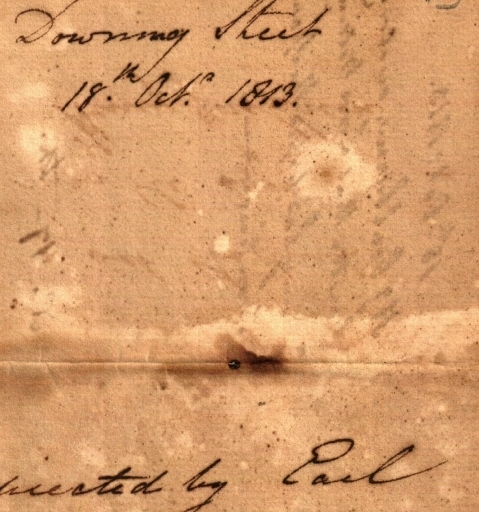 Downing Street
18.th Octr. 1813.
by Earl